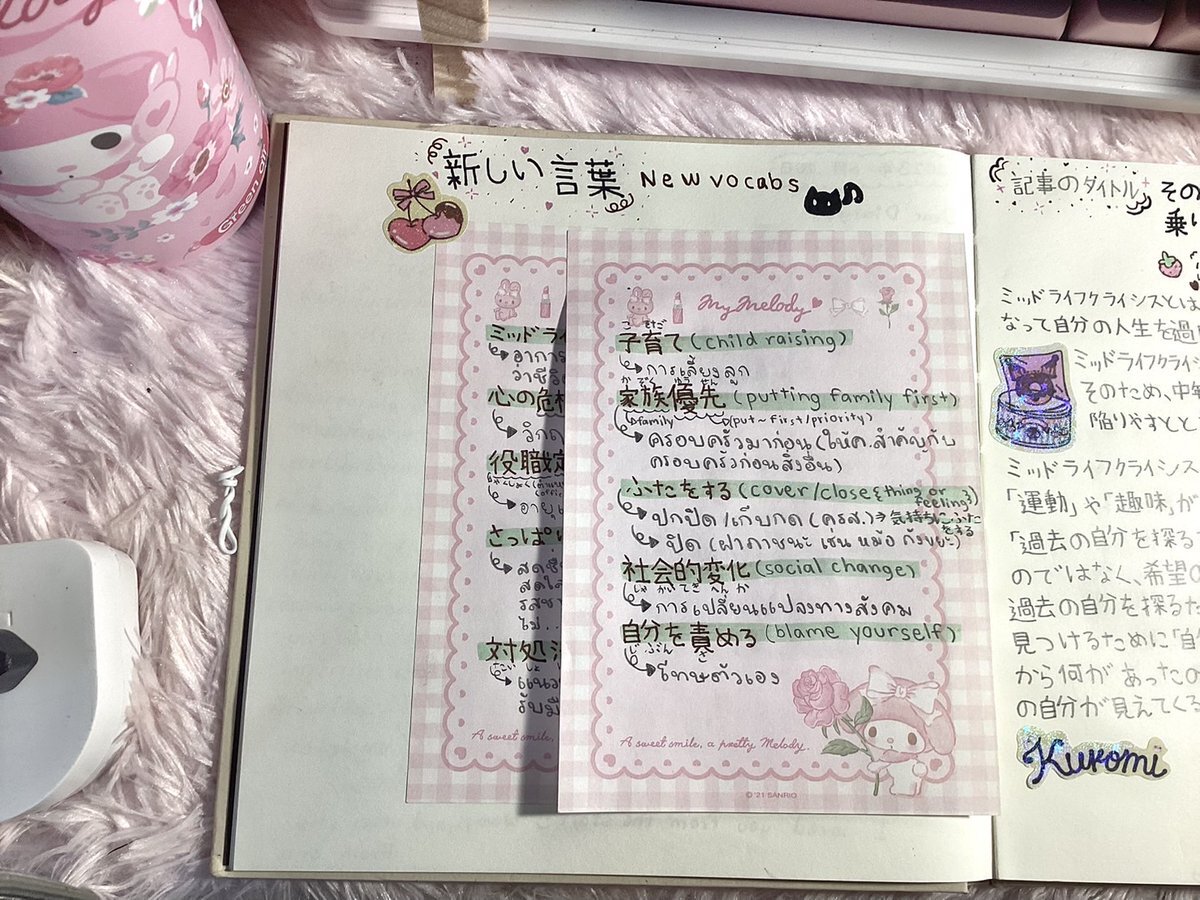 新しい言葉 New vocabs
ミッドライ
心の危
役職定
さっぱり
対処
A sweet smile,
My Melody
こそだ
子育て (child raising)
การเลี้ยงลูก
かぞくゆうせん
家族優先 (putting family first)
family (put ~ first/priority)
ครอบครัวมาก่อน (ให้ค.สำคัญกับ
ครอบครัวก่อนสิ่งอื่น)
ふたをする (cover/close {thing or feeling})
ปกปิด/เก็บกด (ครส.) → 気持ちにふたをする
ปิด (ฝาภาชนะ เช่น หม้อ ถังขยะ)
社会的変化 (social change)
しゃかいてきへんか
การเปลี่ยนแปลงทางสังคม
自分を責める (blame yourself)
じぶん せ
โทษตัวเอง
A sweet smile, a pretty Melody.
© '21 SANRIO
記事のタイトル
その
乗り
ミッドライフクライシスとは
なって自分の人生を過
ミッドライフクライシ
そのため、中年
陥りやすとと
ミッドライフクライシス
「運動」や「趣味」が
「過去の自分を探る
のではなく、希望の
過去の自分を探るた
見つけるために「自
から何があったの
の自分が見えてくる
Kuromi
Green